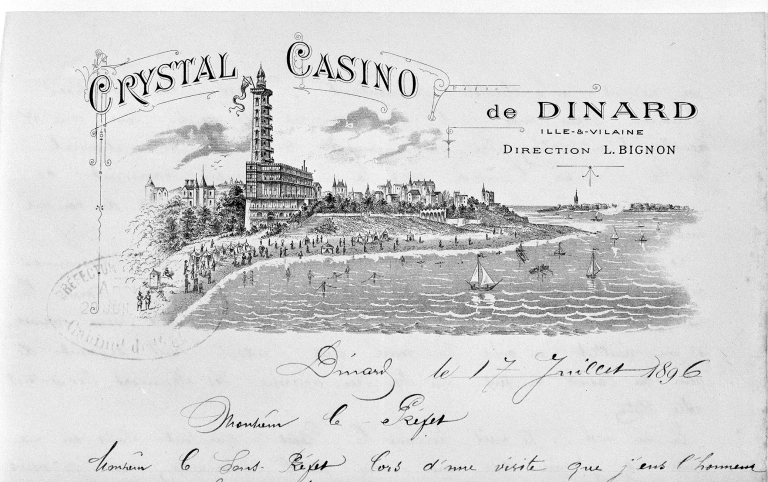 CRYSTAL CASINO
de DINARD
ILLE-&-VILAINE
DIRECTION L. BIGNON
Dinard le 17 Juillet 1896
Monsieur le Préfet
Monsieur le Sous-Préfet lors d'une visite que j'eus l'honneur